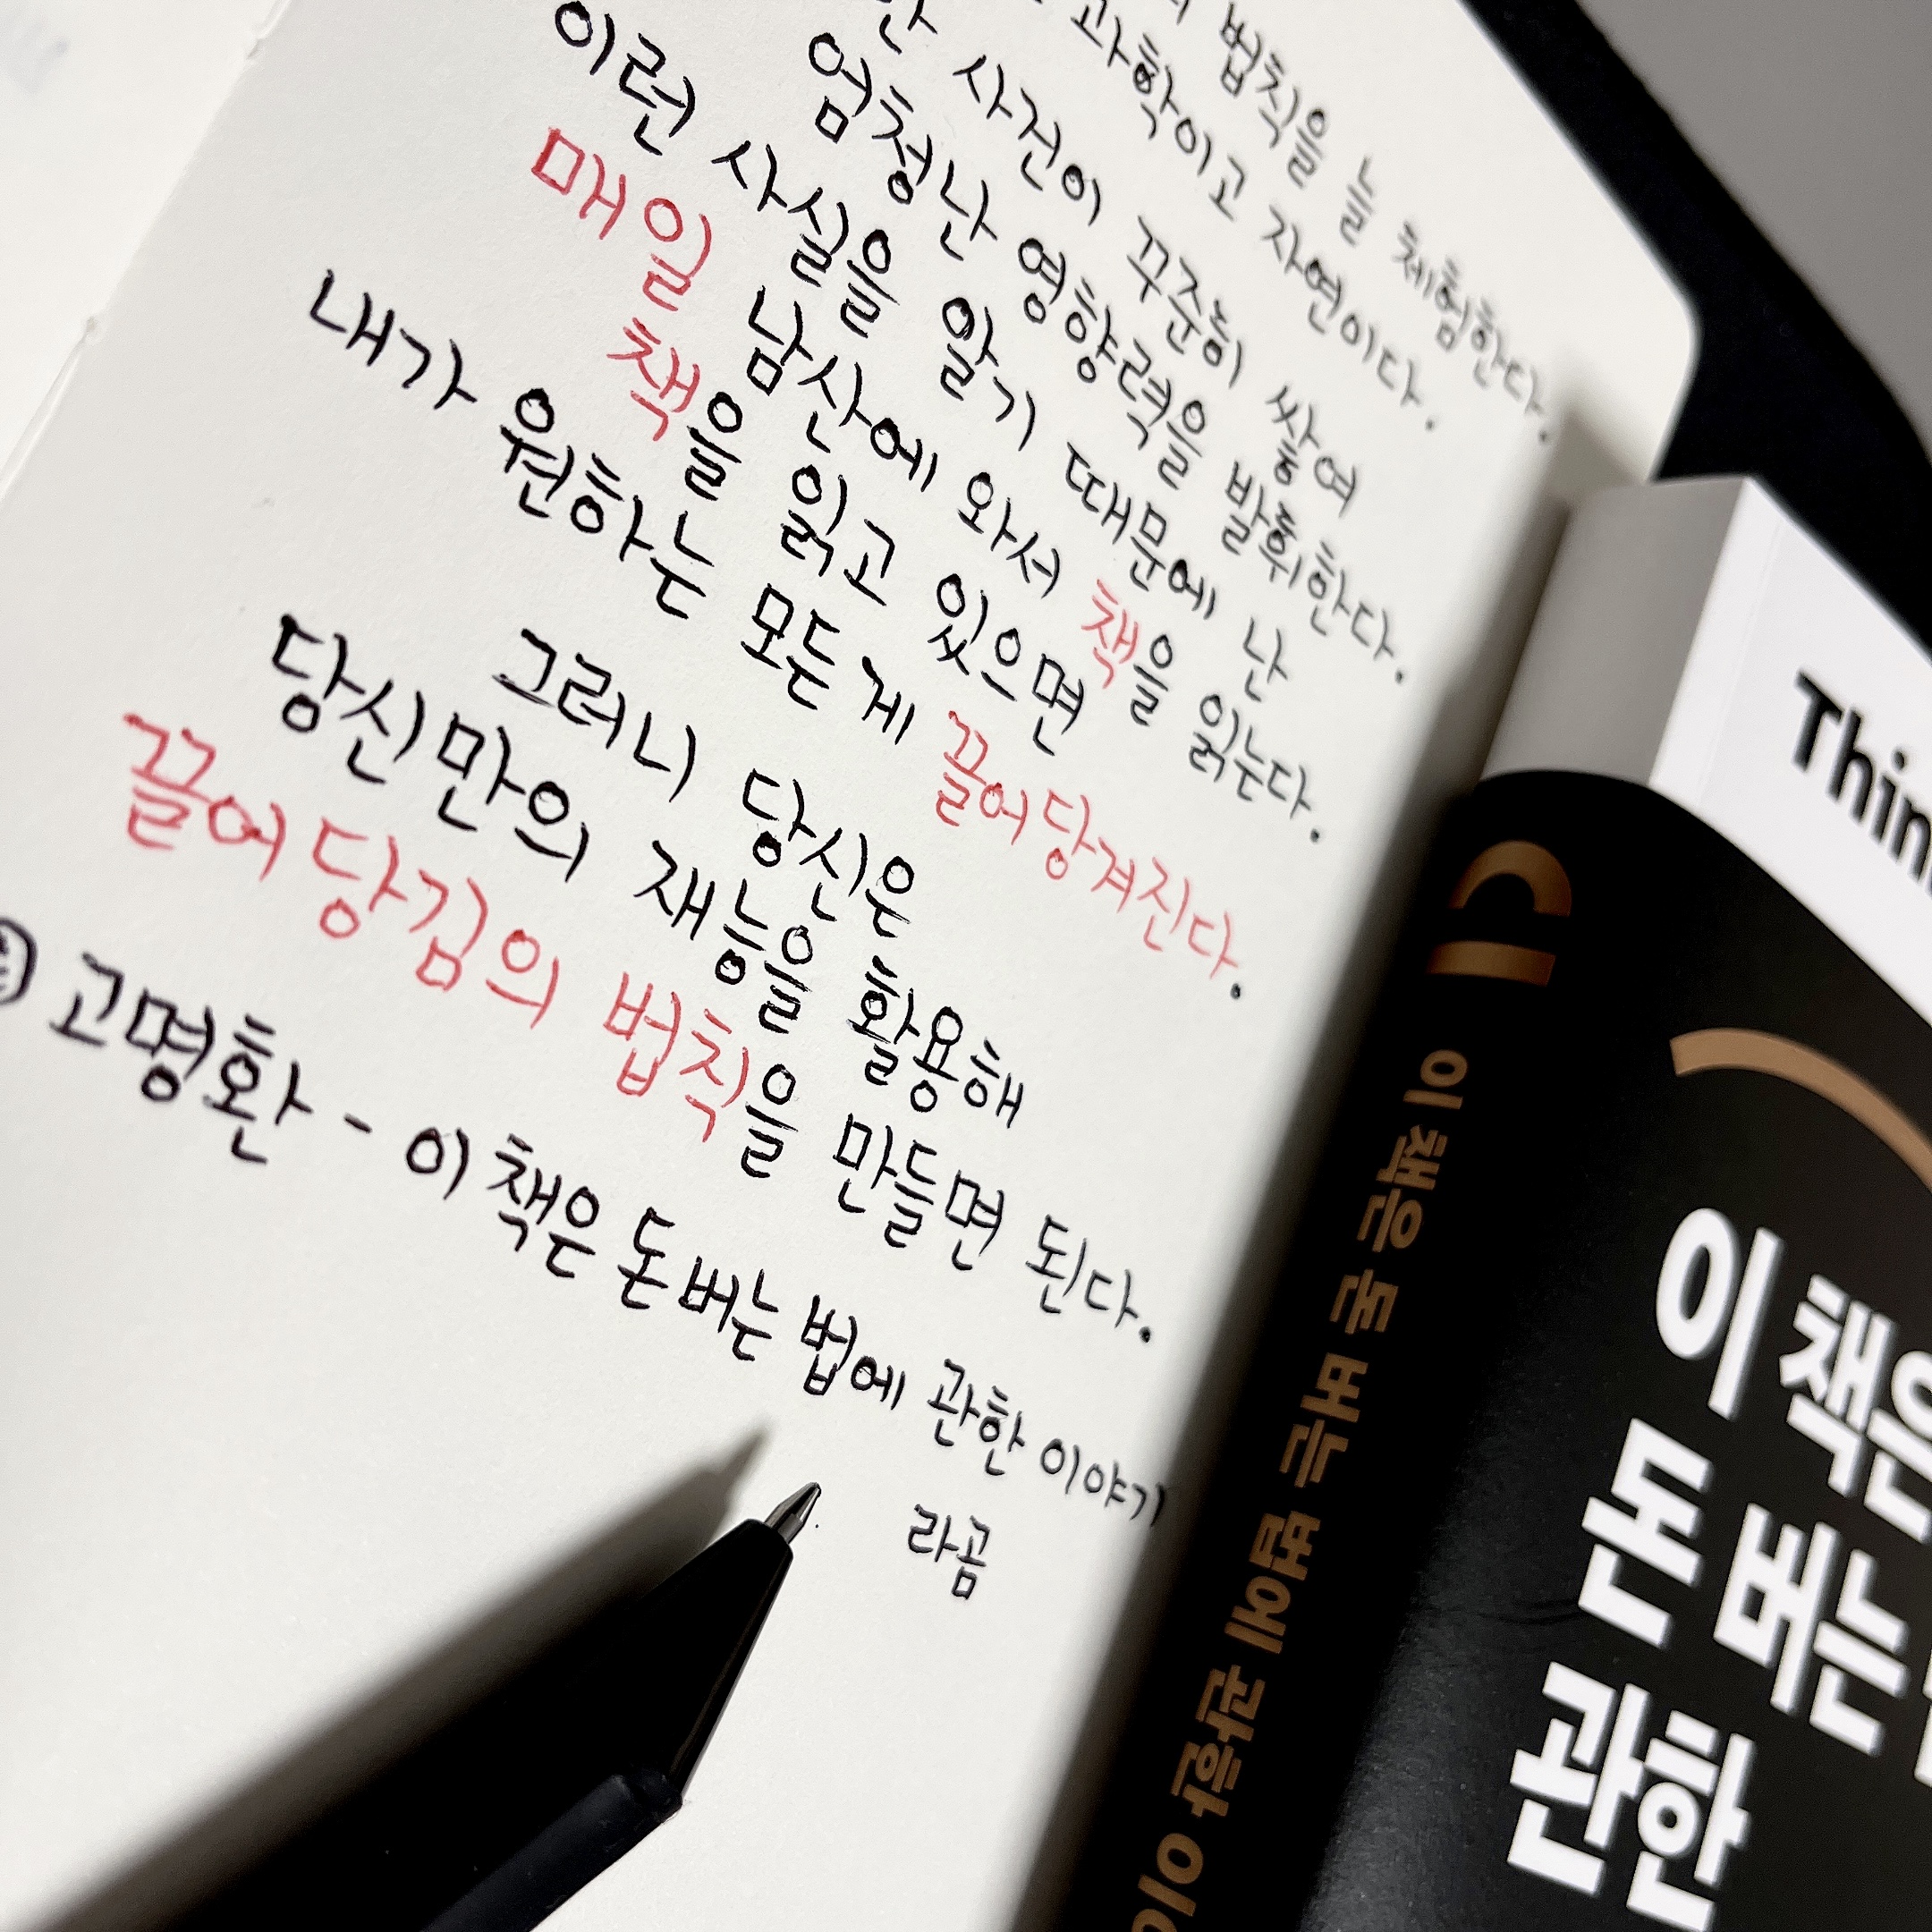 법칙을 늘 체험한다.
과학이고 자연이다.
사건이 꾸준히 쌓여
엄청난 영향력을 발휘한다.
이런 사실을 알기 때문에 난
매일 남산에 와서 책을 읽는다.
책을 읽고 있으면
내가 원하는 모든 게 끌어당겨진다.
그러니 당신은
당신만의 재능을 활용해
끌어당김의 법칙을 만들면 된다.
고명환 - 이 책은 돈 버는 법에 관한 이야기
라곰
이 책은 돈 버는 법에 관한
이 책은
돈 버는
관한